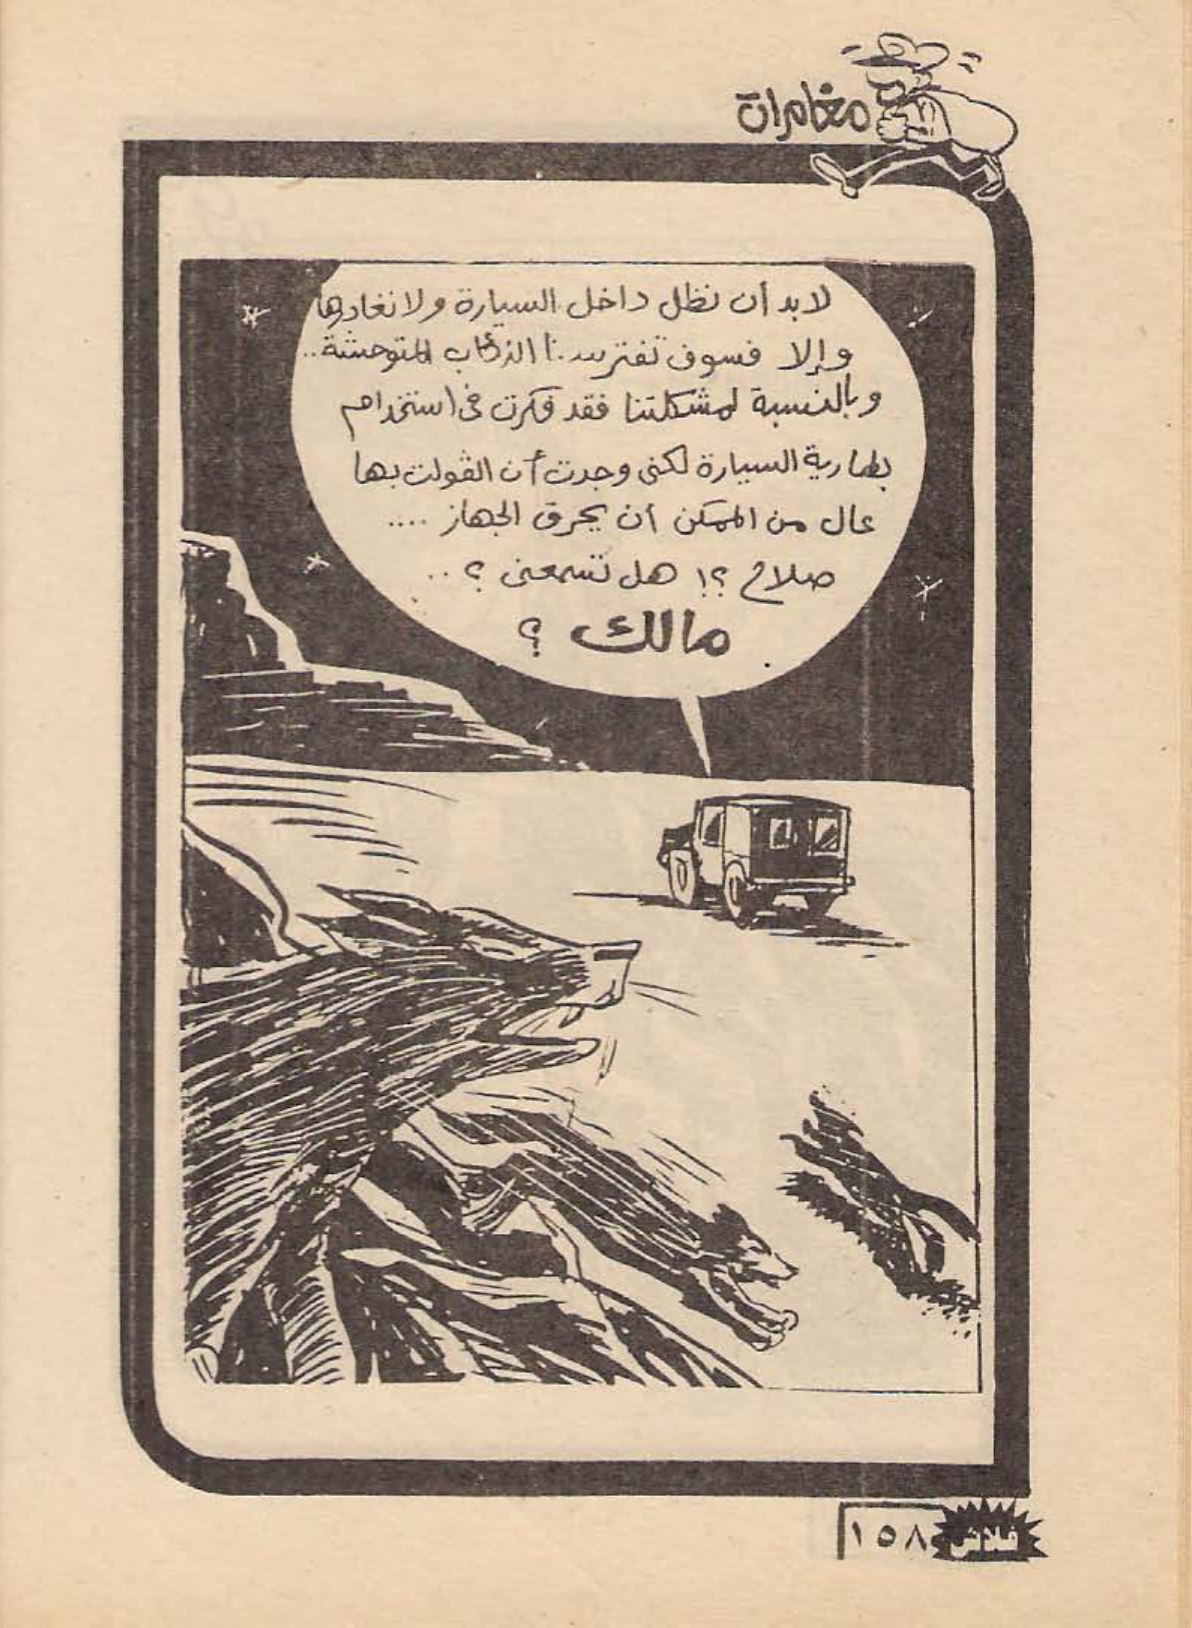 مغامرات
لابد أن نظل داخل السيارة ولا نغادرها
وإلا فسوف تفترسنا الذئاب المتوحشة..
وبالنسبة لمشكلتنا فقد فكرت فى استخدام
بطارية السيارة لكنى وجدت أن الڤولت بها
عال من الممكن أن يحرق الجهاز ....
صلاح ؟! هل تسمعنى ؟ ..
مالك ؟
فلاش ١٥٨